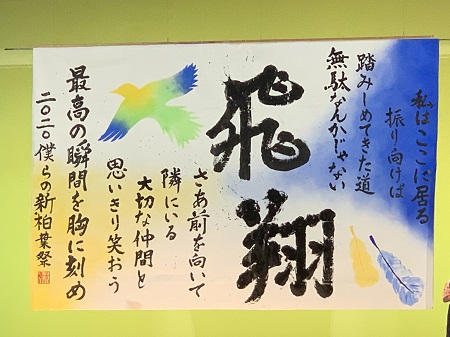 私はここに居る
振り向けば
踏みしめてきた道
無駄なんかじゃない
飛翔
さあ前を向いて
隣にいる
大切な仲間と
思いきり笑おう
最高の瞬間を胸に刻め
二〇二〇僕らの新柏葉祭